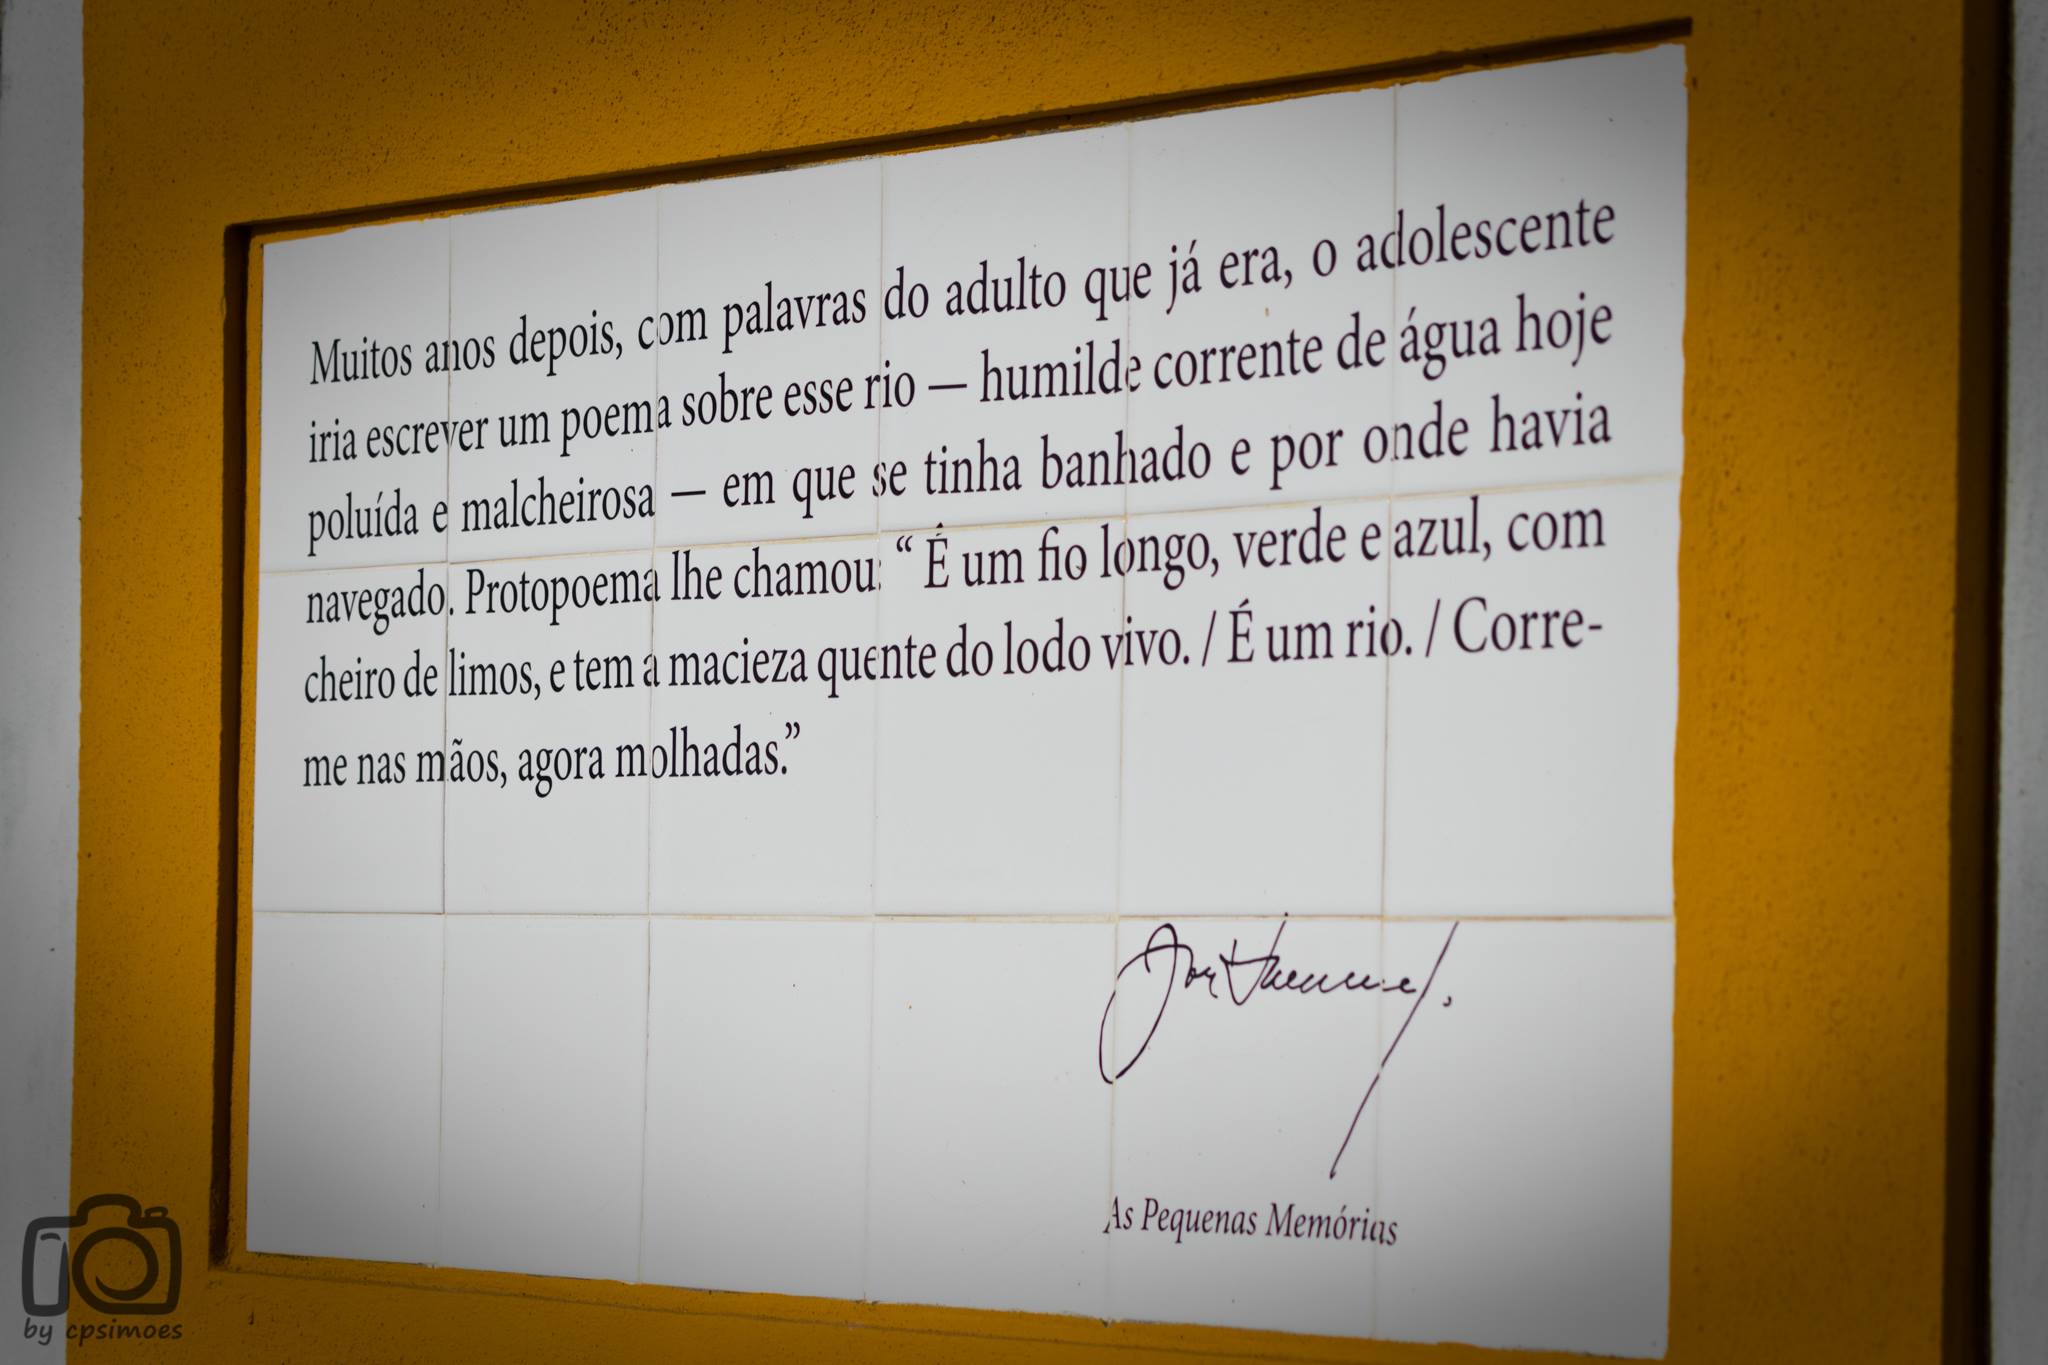 Muitos anos depois, com palavras do adulto que já era, o adolescente
iria escrever um poema sobre esse rio — humilde corrente de água hoje
poluída e malcheirosa — em que se tinha banhado e por onde havia
navegado. Protopoema lhe chamou: “ É um fio longo, verde e azul, com
cheiro de limos, e tem a macieza quente do lodo vivo. / É um rio. / Corre-
me nas mãos, agora molhadas.”
As Pequenas Memórias
by cpsimoes